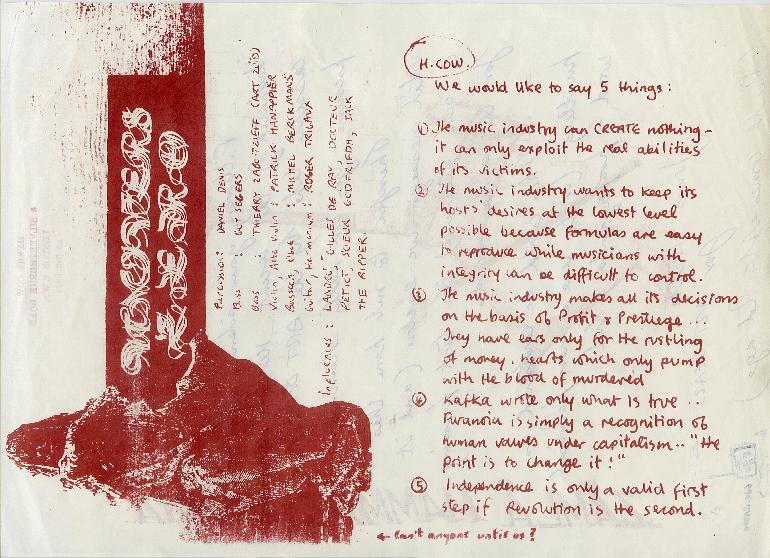 UNIVERS
ZERO
Percussion : DANIEL DENIS
Bass : GUY SEGERS
Bass : THIERRY ZABOITZIEFF (ART ZOYD)
Violin, Alto Violin : PATRICK HANAPPIER
Basson, Oboe : MICHEL BERCKMANS
Guitar, Harmonium : ROGER TRIGAUX
Influences : LANDRU, GILLES DE RAY, DOCTEUR
PETIOT, SOEUR GODFRIEDH, JACK
THE RIPPER.
H. COW.
We would like to say 5 things :
① The music industry can CREATE nothing -
it can only exploit the real abilities
of its victims.
② The music industry wants to keep its
hosts' desires at the lowest level
possible because formulas are easy
to reproduce while musicians with
integrity can be difficult to control.
③ The music industry makes all its decisions
on the basis of Profit & Prestiege ...
They have ears only for the rustling
of money. hearts which only pump
with the blood of murdered
④ Kafka wrote only what is true ..
Paranoia is simply a recognition of
human values under capitalism .. "The
point is to change it !"
⑤ Independence is only a valid first
step if Revolution is the second.
← Can't anyone untie us ?